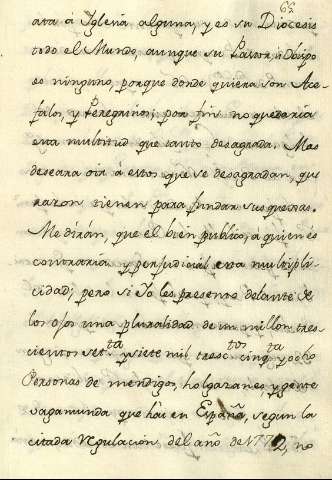 62
ata á Iglesia alguna, y es su Diocesis
todo el Mundo, aunque su Pastor, ú Obispo
es ninguno, porque donde quiera son Ace-
falos, y Peregrinos; por fin no quedaria
esta multitud que tanto desagrada. Mas
deseara oir á estos que se desagradan, que
razon tienen para fundar sus quexas.
Me dirán, que el bien publico, a quien es
contraria y perjudicial esta multipli-
cidad; pero si Yo les presento delante de
los ojos una pluralidad de un millon tres-
cientos set.ta y siete mil tresc.tos cinq.ta y ocho
Personas de mendigos, holgazanes, y gente
vagamunda que hai en España, segun la
citada regulacion del año de 177, no